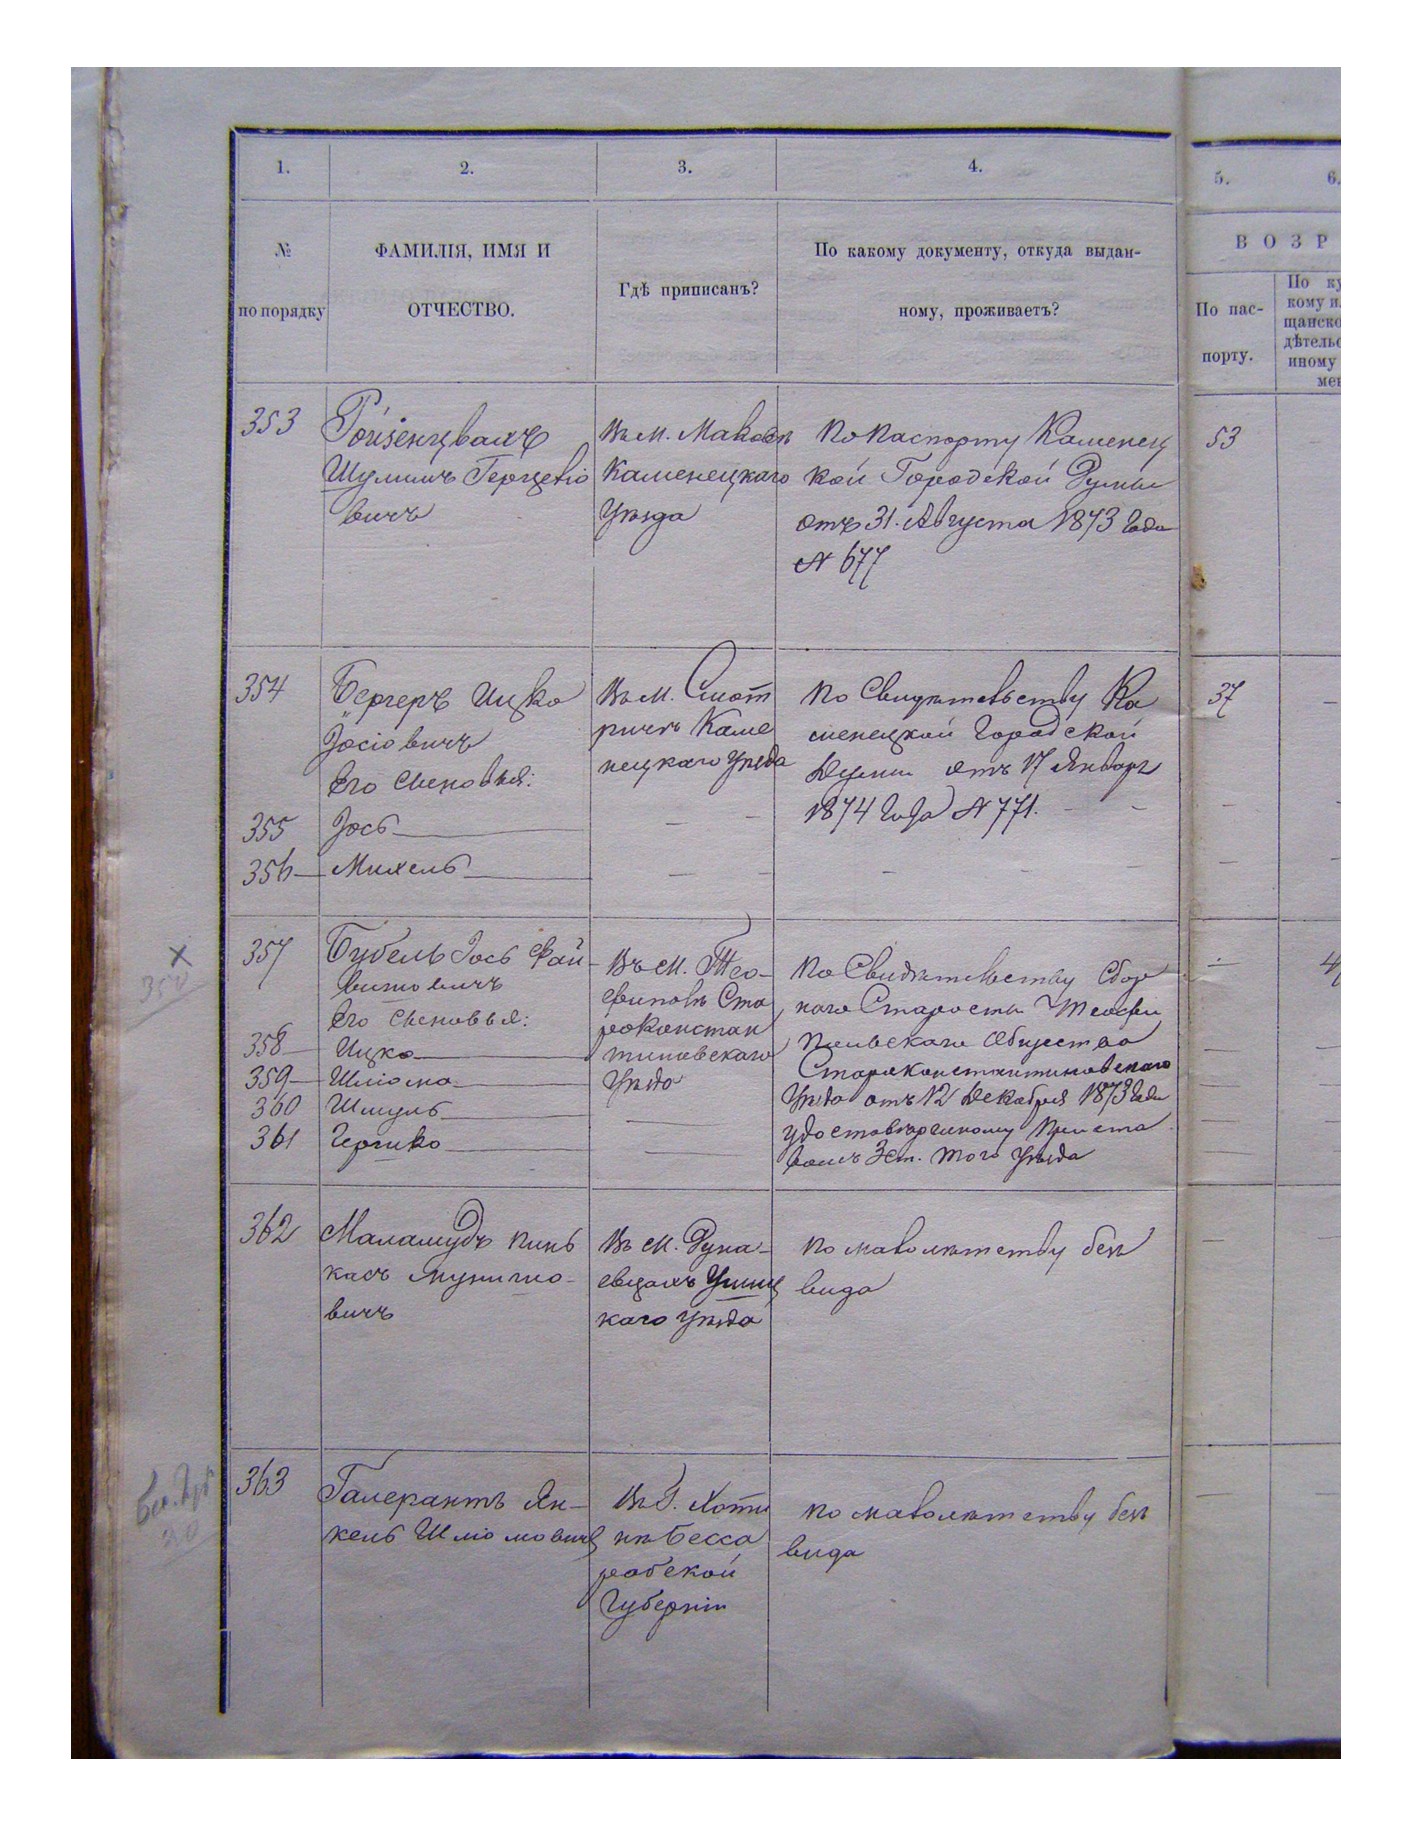 1.
2.
3.
4.
5.
6.
№
по порядку
ФАМИЛІЯ, ИМЯ И
ОТЧЕСТВО.
Гдѣ приписанъ?
По какому документу, откуда выдан-
ному, проживаетъ?
ВОЗР
По пас-
порту.
По ку
кому и
щанско
дѣтельс
иному
мен
353
Ройзенцвахъ
Шулимъ
вичъ
Въ М. Маковѣ
Каменецкаго
Уѣзда
По Паспорту Каменец
кой Городской Думы
отъ 31. Августа 1873 года
№ 677
53
354
Бергеръ Ицко
Іосіовичъ
Его сыновья:
355
Іось
356
Михель
Въ М. Смот
ричѣ Каме
нецкаго Уѣзда
По Свидѣтельству Ка
менецкой Городской
Думы отъ 17 Января
1874 Года № 771.
37
357
Бубель Іось Фай-
вишовичъ
Его сыновья:
358
Ицко
359
Шліома
360
Шмуль
361
Гершко
Въ М. Тео-
фиполѣ Ста
роконстан
тиновскаго
Уѣзда
По Свидѣтельству Сбор
наго Старосты Теофи
польскаго Общества
Староконстантиновскаго
Уѣзда отъ 12 Декабря 1873 Года
удостовѣренному Приста
вомъ 3 ст. того Уѣзда
350
362
Маламудъ Пинь
касъ
вичъ
Въ М. Дуна-
евцахъ Ушиц
каго Уѣзда
по малолѣтству безъ
вида
363
Галерантъ Ян-
кель Шліомовичъ
Въ Г. Хоти
нѣ Бесса
рабской
Губерніи
по малолѣтству безъ
вида
30